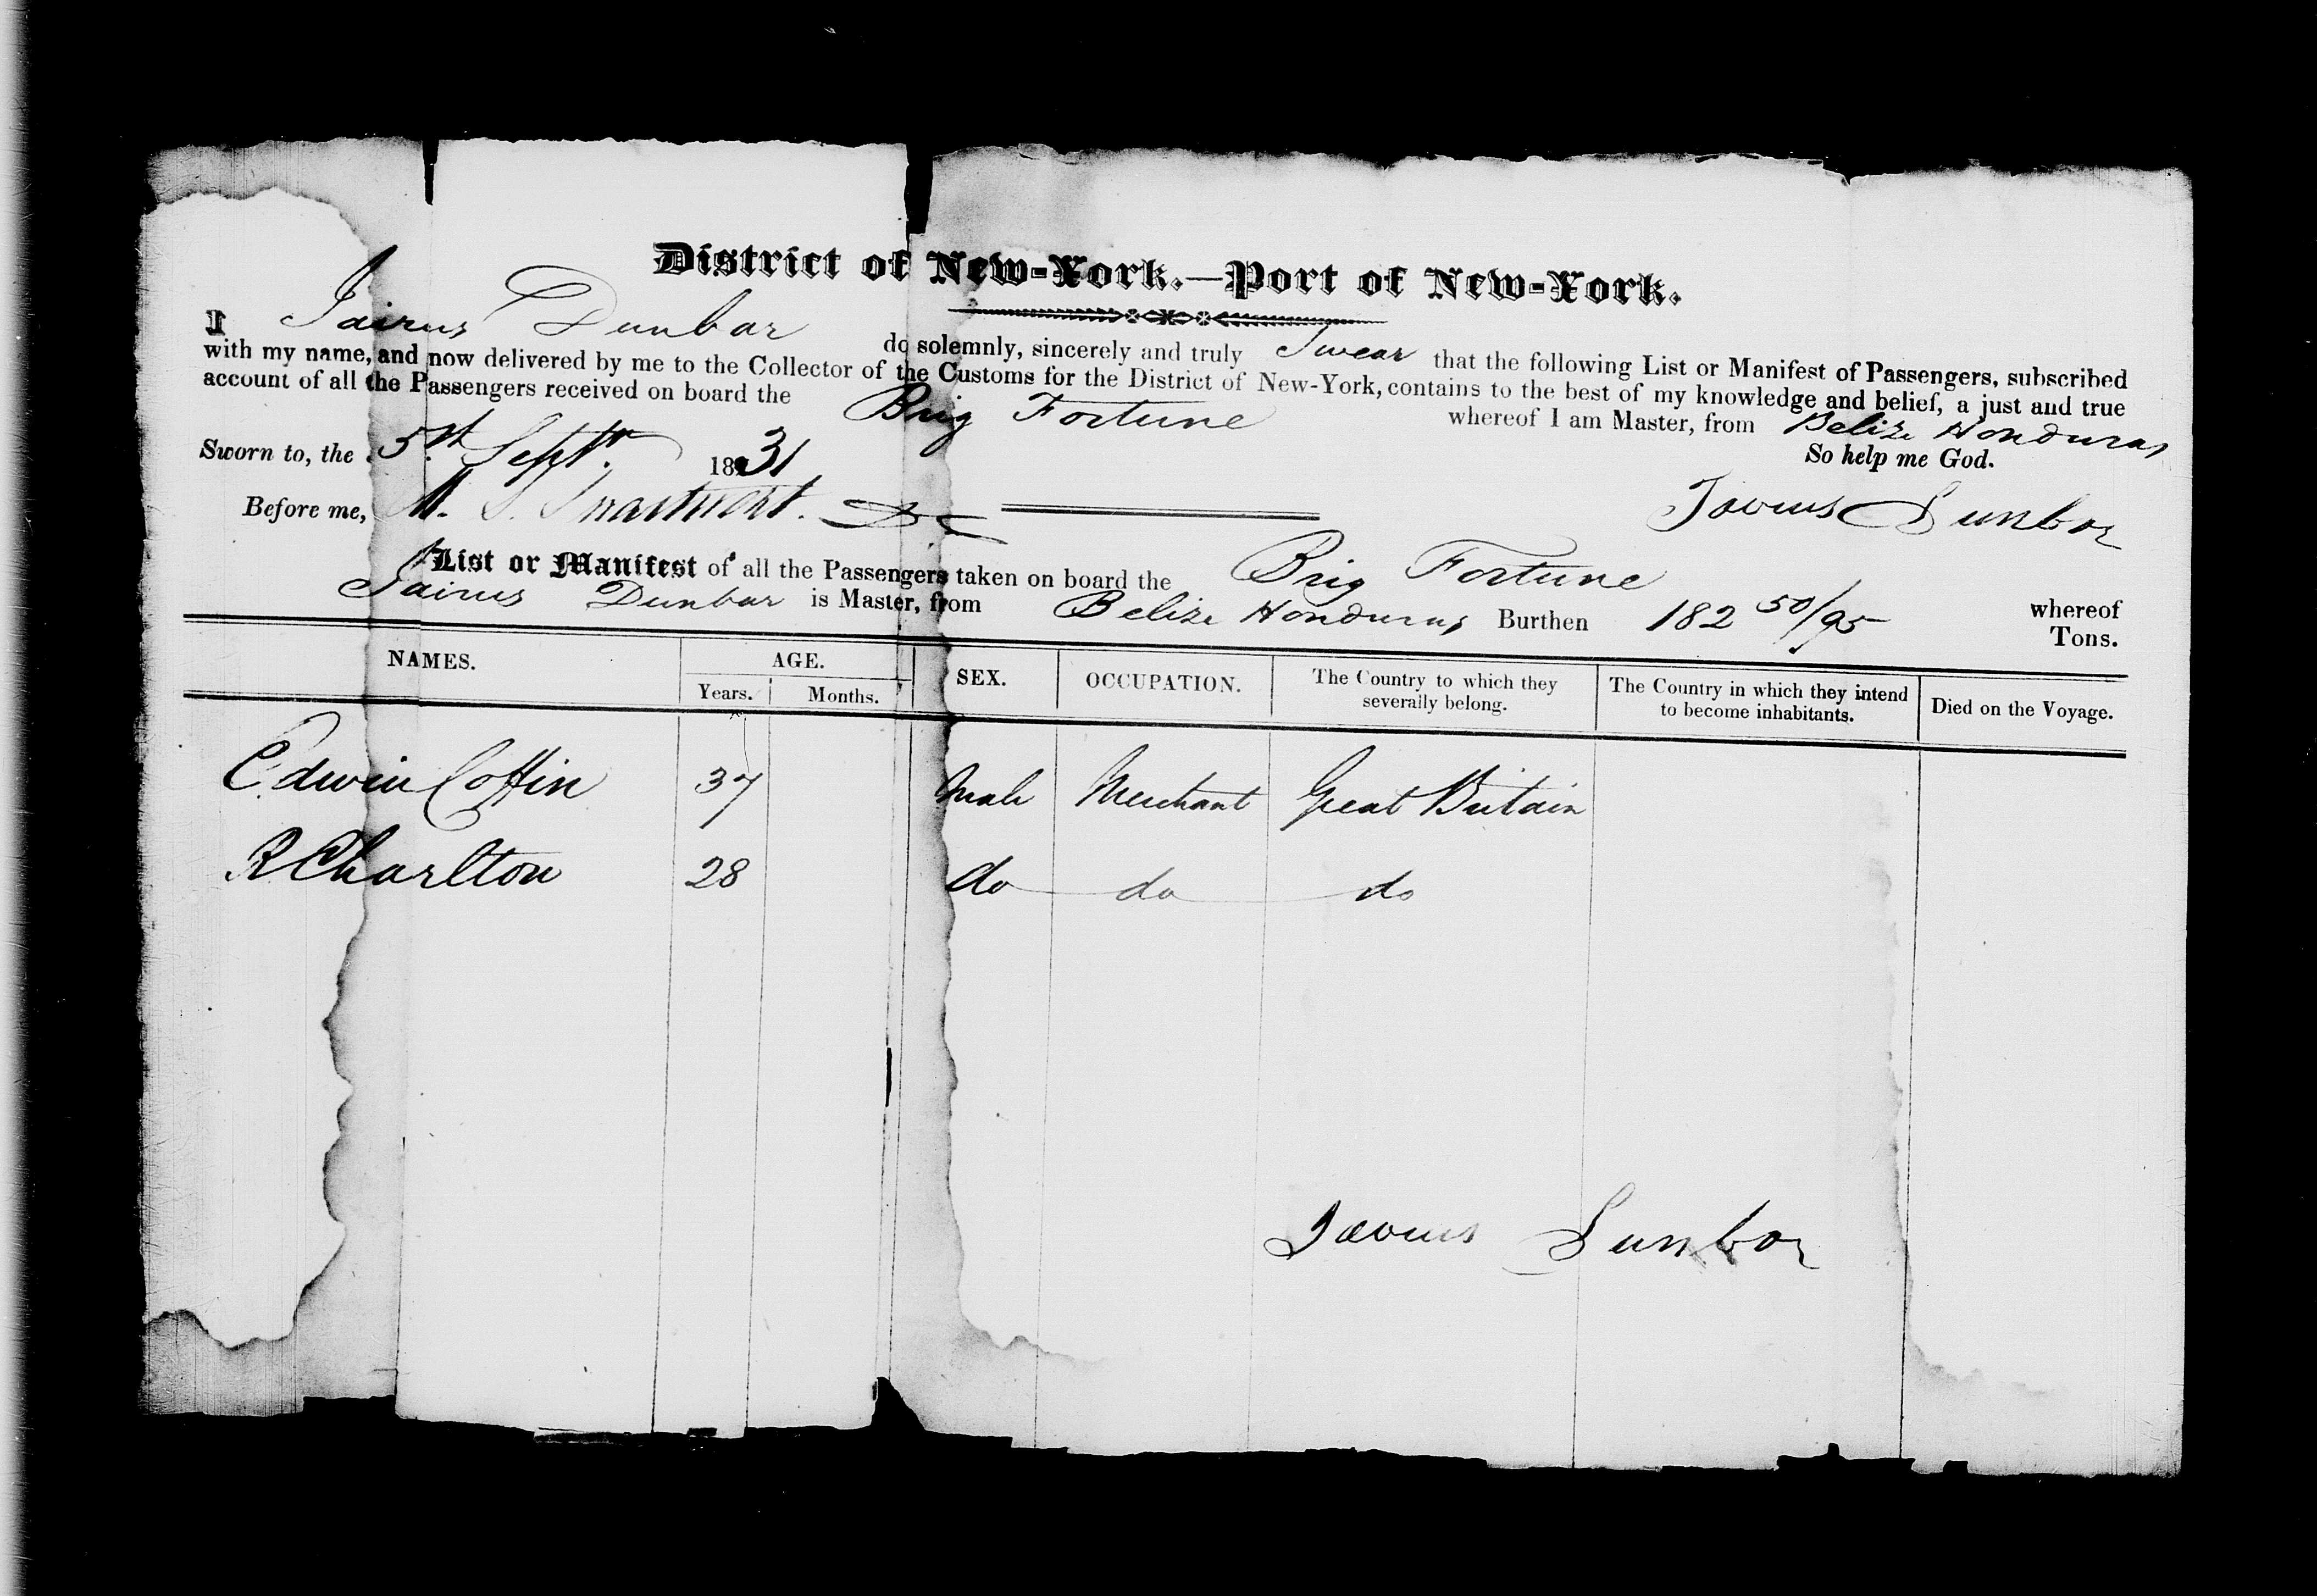 District of New-York.—Port of New-York.
I Jairus Dunbar do solemnly, sincerely and truly Swear that the following List or Manifest of Passengers, subscribed
with my name, and now delivered by me to the Collector of the Customs for the District of New-York, contains to the best of my knowledge and belief, a just and true
account of all the Passengers received on board the Brig Fortune whereof I am Master, from Belize Honduras
Sworn to, the 5st Septr. 1831 So help me God.
Before me, M. S. Swartwout. Jairus Dunbar
List or Manifest of all the Passengers taken on board the Brig Fortune whereof
Jairus Dunbar is Master, from Belize Honduras Burthen 182 50/95 Tons.
NAMES. AGE. SEX. OCCUPATION. The Country to which they severally belong. The Country in which they intend to become inhabitants. Died on the Voyage.
Years. Months.
Edwin Coffin 37 Male Merchant Great Britain
R Charlton 28 do do do
Jairus Dunbar